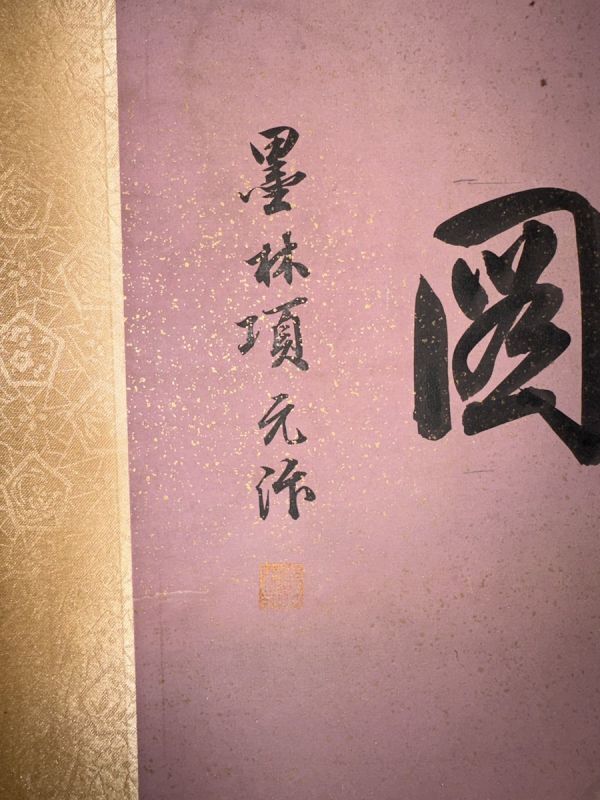 圖
墨林項元汴